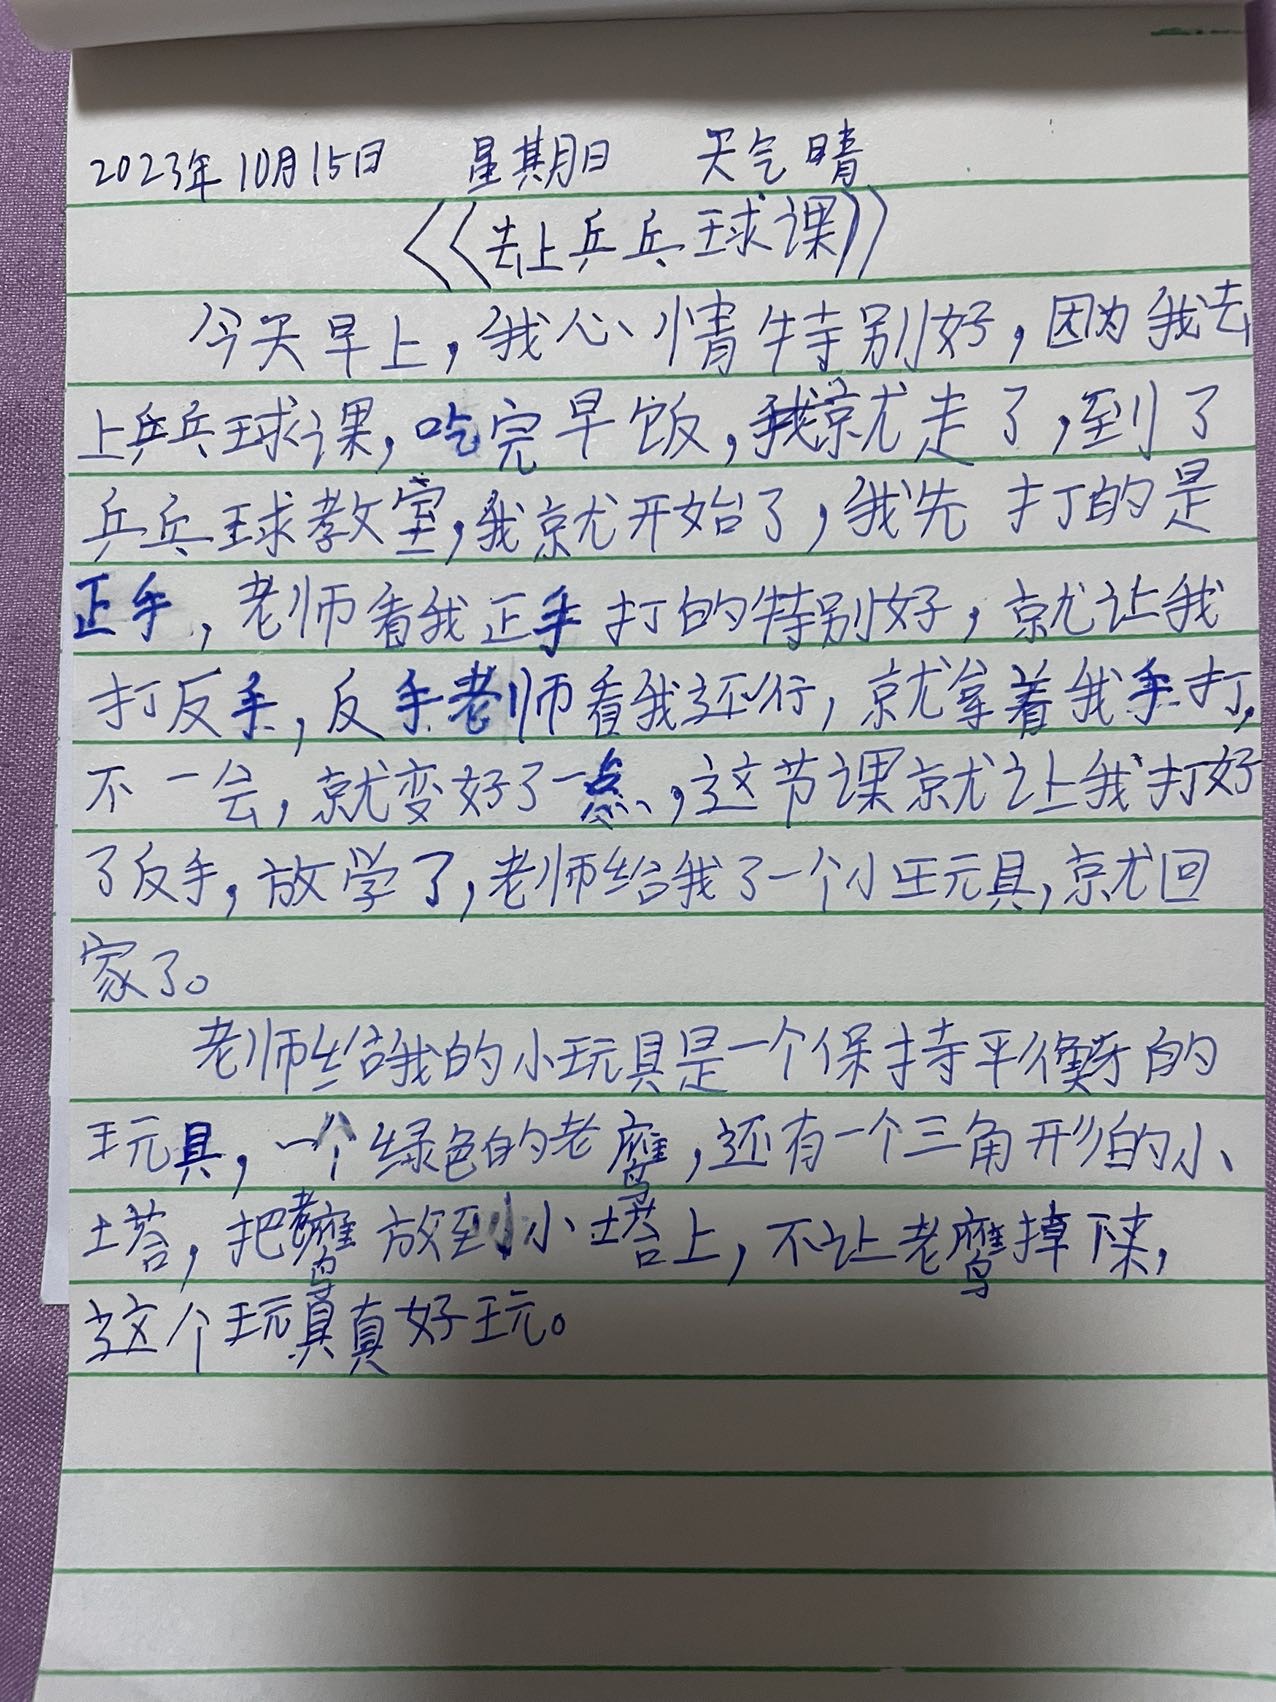 2023年10月15日 星期日 天气晴
《去上乒乓球课》
今天早上，我心情特别好，因为我去
上乒乓球课，吃完早饭，我就走了，到了
乒乓球教室，我就开始了，我先打的是
正手，老师看我正手打的特别好，就让我
打反手，反手老师看我还行，就拿着我手打，
不一会，就变好了一点，这节课就让我打好
了反手，放学了，老师给我了一个小玩具，就回
家了。
老师给我的小玩具是一个保持平衡的
玩具，一个绿色的老鹰，还有一个三角形的小
塔，把老鹰放到小塔上，不让老鹰掉下来，
这个玩具真好玩。